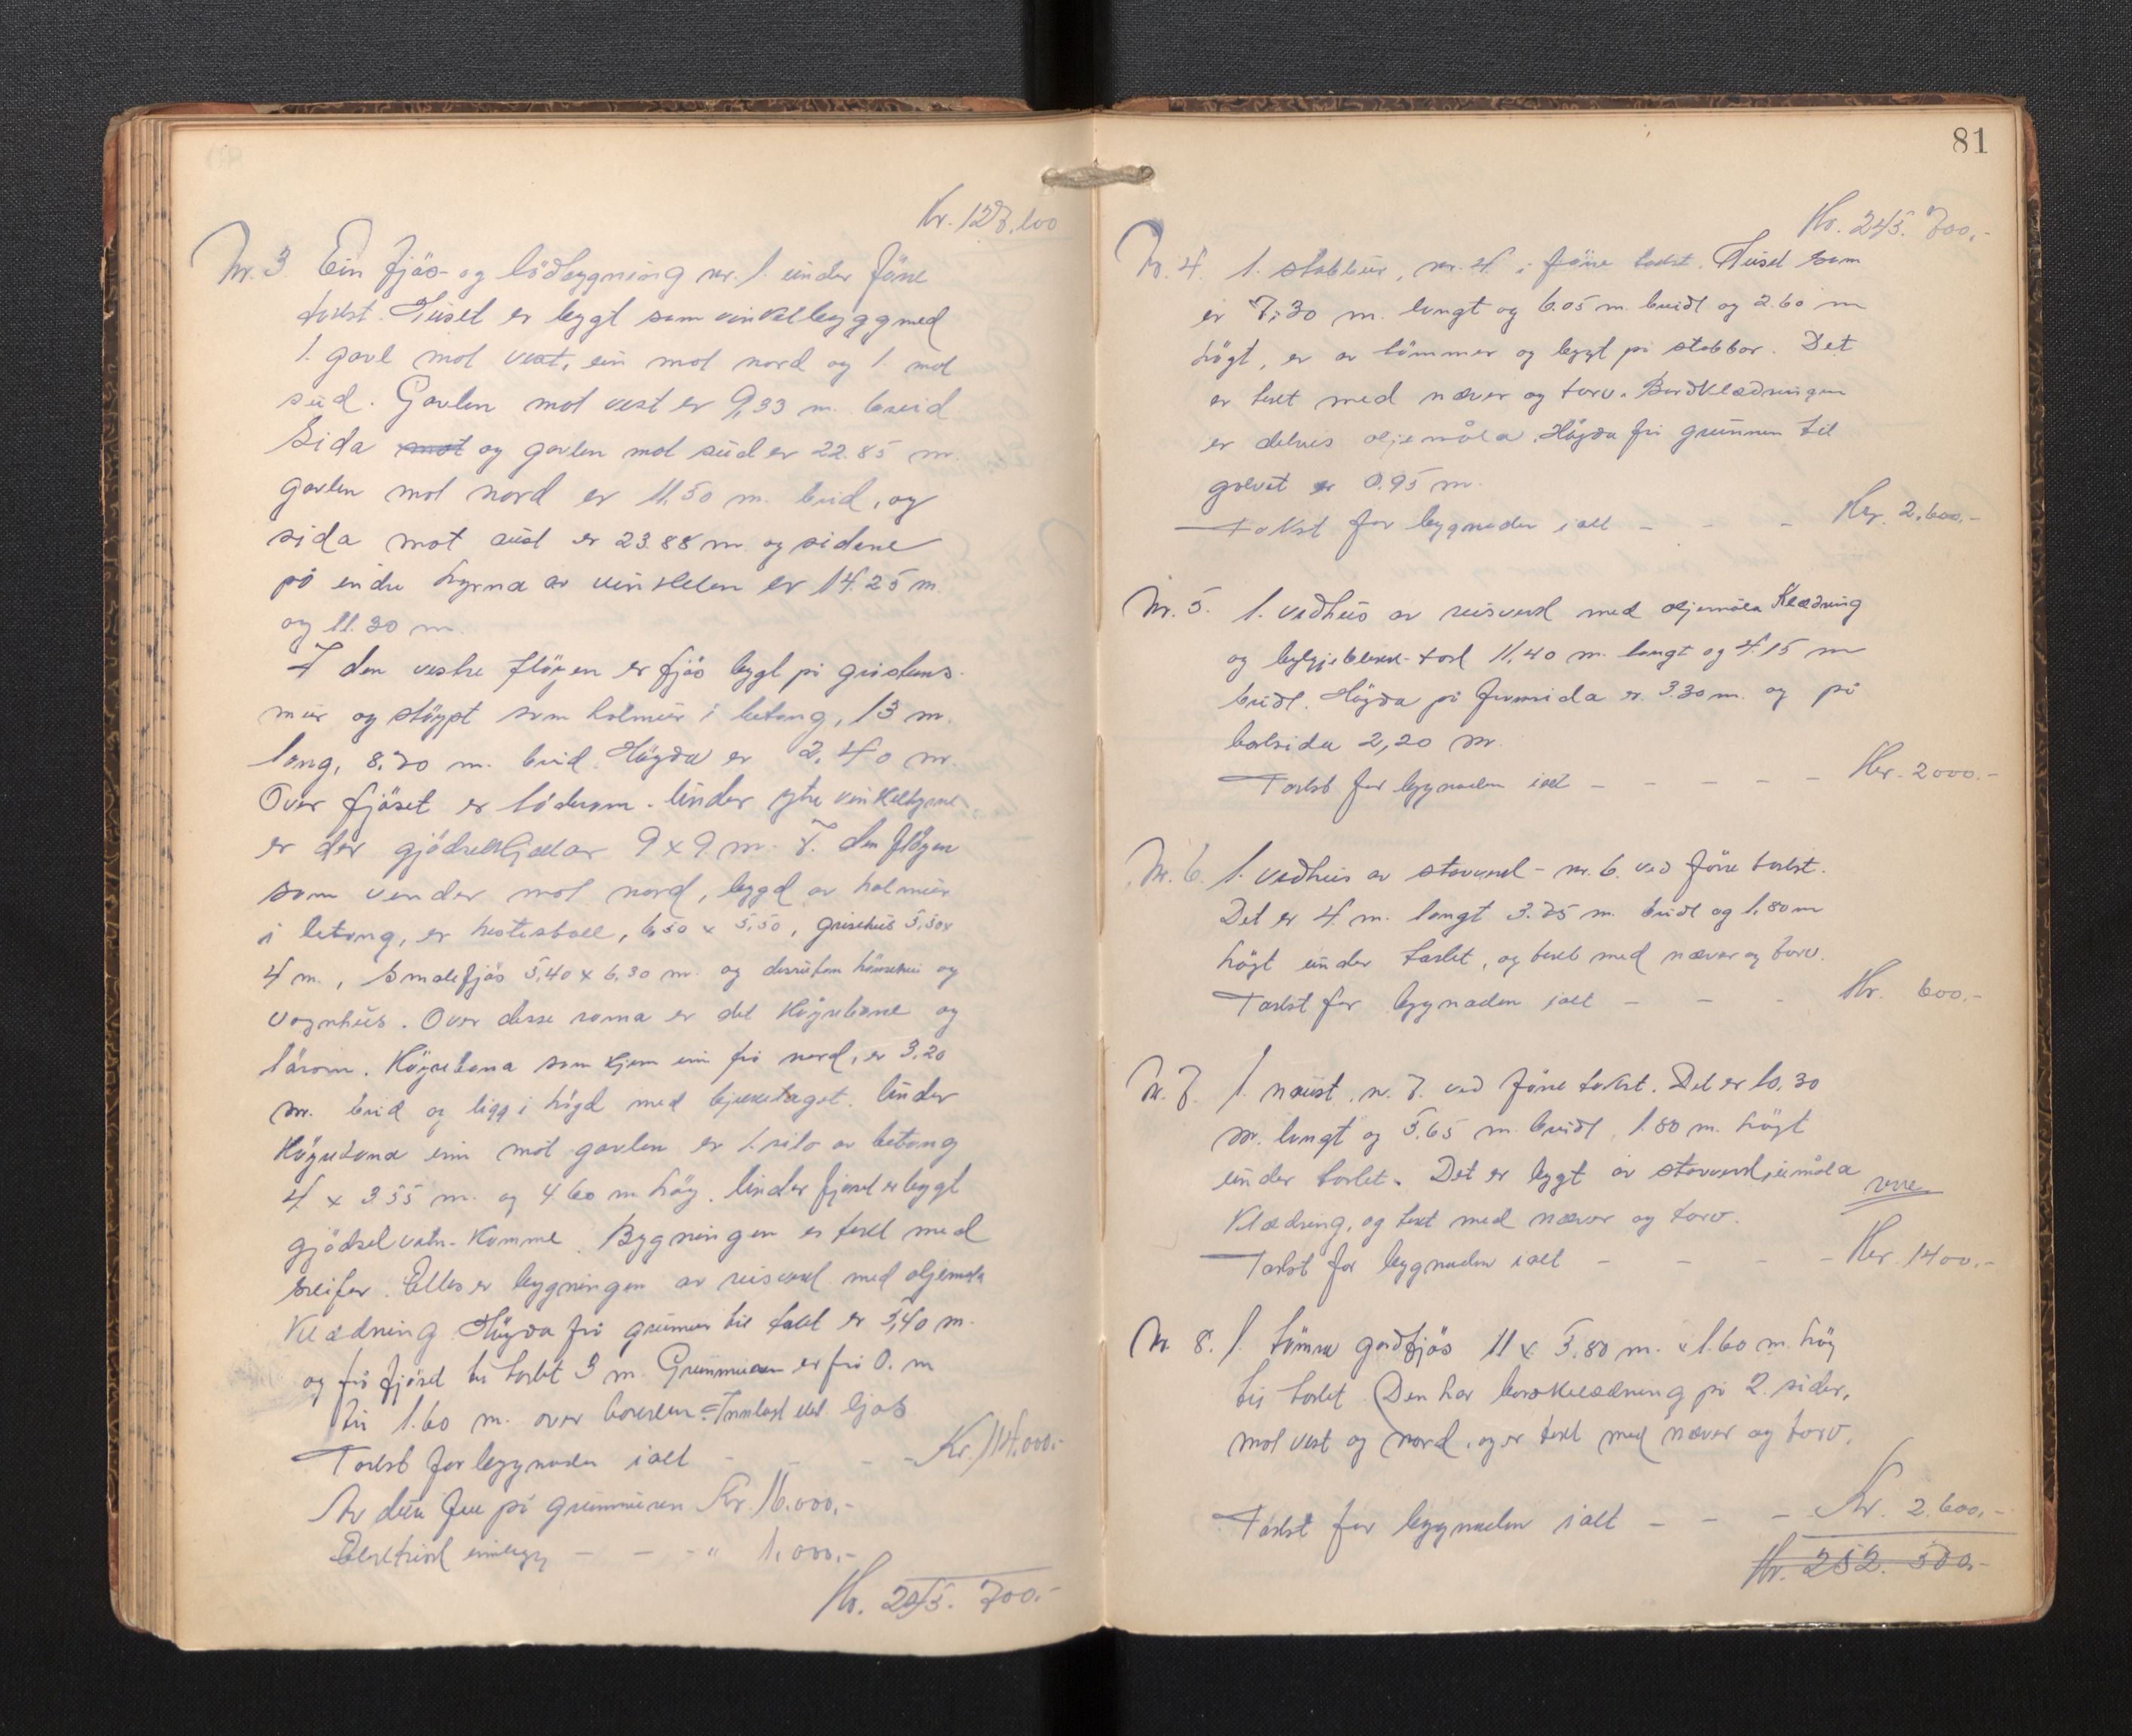 Kr. 127.100
Nr. 3 Ein fjös- og lödbygning nr. 1. under före
takst. Huset er bygt som vinkelbygg med
1. gavl mot vest, ein mot nord og 1. mot
süd. Gavlen mot vest er 9,33 m. breid
Sida mot og gavlen mot süd er 22.85 m.
gavlen mot nord er 11.50 m. breid, og
sida mot aust er 23.88 m. og sidene
på indre hyrna av vinkelen er 14.25 m.
og 11.30 m.
I den vestre flöyen er fjös bygt på gråsteins-
mur og stöypt som holmur i betong, 13 m.
lang, 8,70 m. breid. Högda er 2,40 m.
Over fjöset er löderom. Under ytre vinkelhyrne
er der gjödselkjellar 9 x 9 m. I den flöyen
som vender mot nord, bygd av holmur
i betong, er hestestall, 6,50 x 5,50, grisehus 5,50 x
4 m., Smalefjös 5,40 x 6,30 m. og dessutan hönsehus og
vognhus. Over desse roma er det Höyrebane og
lårom. Höyrebana som kjem inn frå nord, er 3,20
m. breid og ligg i högd med bjelkelaget. Under
Höyrebana inn mot gavlen er 1. silo av betong
4 x 3 55 m. og 4.60 m. hög. Under fjöset er bygt
gjödselvatn-Kumme. Bygningen er tekt med
skifer. Elles er bygningen av reisverk med oljemåla
Klædning. Högda frå grunnen til taket er 5,40 m.
og frå fjöset til taket 3 m. Grunnmuren er frå 0. m
til 1.60 m. over bakken. Innlagt elek. ljos
Takst for bygnaden i alt - - - - Kr. 114.000.-
Av dette fell på grunnmuren Kr. 16.000,-
Elektrisk innlegg - - - " 1.000,-
Kr. 245. 700.-
81
Kr. 245. 700,-
Nr. 4. 1. stabbur, nr. 4. i före takst. Huset som
er 7,30 m. langt og 6.05 m. breidt og 2.60 m
högt, er av tömmer og bygt på stabbar. Det
er tekt med næver og torv. Bordklædningen
er delvis oljemåla. Högda frå grunnen til
golvet er 0.95 m.
Takst for bygnaden i alt - - - Kr. 2.600,-
Nr. 5. 1. vedhus av reisverk med oljemåla Klædning
og bylgjeblekk-tak 11,40 m. langt og 4.15 m
breidt. Högda på framsida er 3.30 m. og på
baksida 2,20 m.
Takst for bygnaden i alt - - - - - Kr. 2000.-
Nr. 6. 1. vedhus av stavverk - nr. 6. ved före takst.
Det er 4. m. langt 3.75 m. breidt og 1,80 m
högt under taket, og tekt med næver og torv.
Takst for bygnaden i alt - - - Kr. 600,-
Nr. 7. 1. naust, nr. 7. ved före takst. Det er 10,30
m. langt og 5.65 m. breidt, 1.80 m. högt
under taket. Det er bygt av stavverk, umåla
Klædning, og tekt med næver og torv.
Takst for bygnaden i alt - - - - - Kr. 1400.-
Nr. 8. 1. tömra geitfjös 11 x 5.80 m. x 1.60 m. hög
til taket. Den har bordklædning på 2. sider,
mot vest og nord, og er tekt med næver og torv.
Takst for bygnaden i alt - - - Kr. 2.600,-
Kr. 252. 500,-